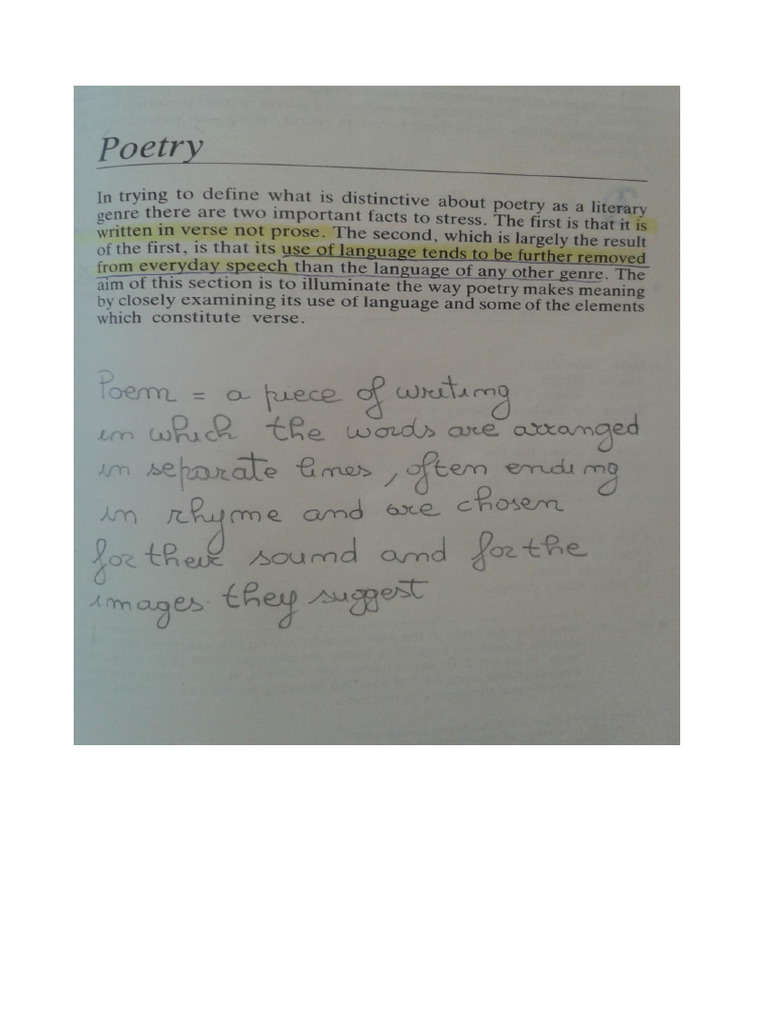 Poetry
In trying to define what is distinctive about poetry as a literary
genre there are two important facts to stress. The first is that it is
written in verse not prose. The second, which is largely the result
of the first, is that its use of language tends to be further removed
from everyday speech than the language of any other genre. The
aim of this section is to illuminate the way poetry makes meaning
by closely examining its use of language and some of the elements
which constitute verse.
Poem = a piece of writing
in which the words are arranged
in separate lines, often ending
in rhyme and are chosen
for their sound and for the
images they suggest